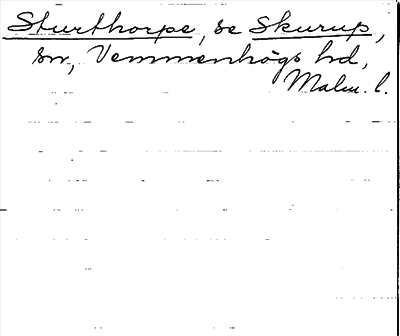 Sturthorpe, se Skurup,
sn, Vemmenhögs hd,
Malm. l.